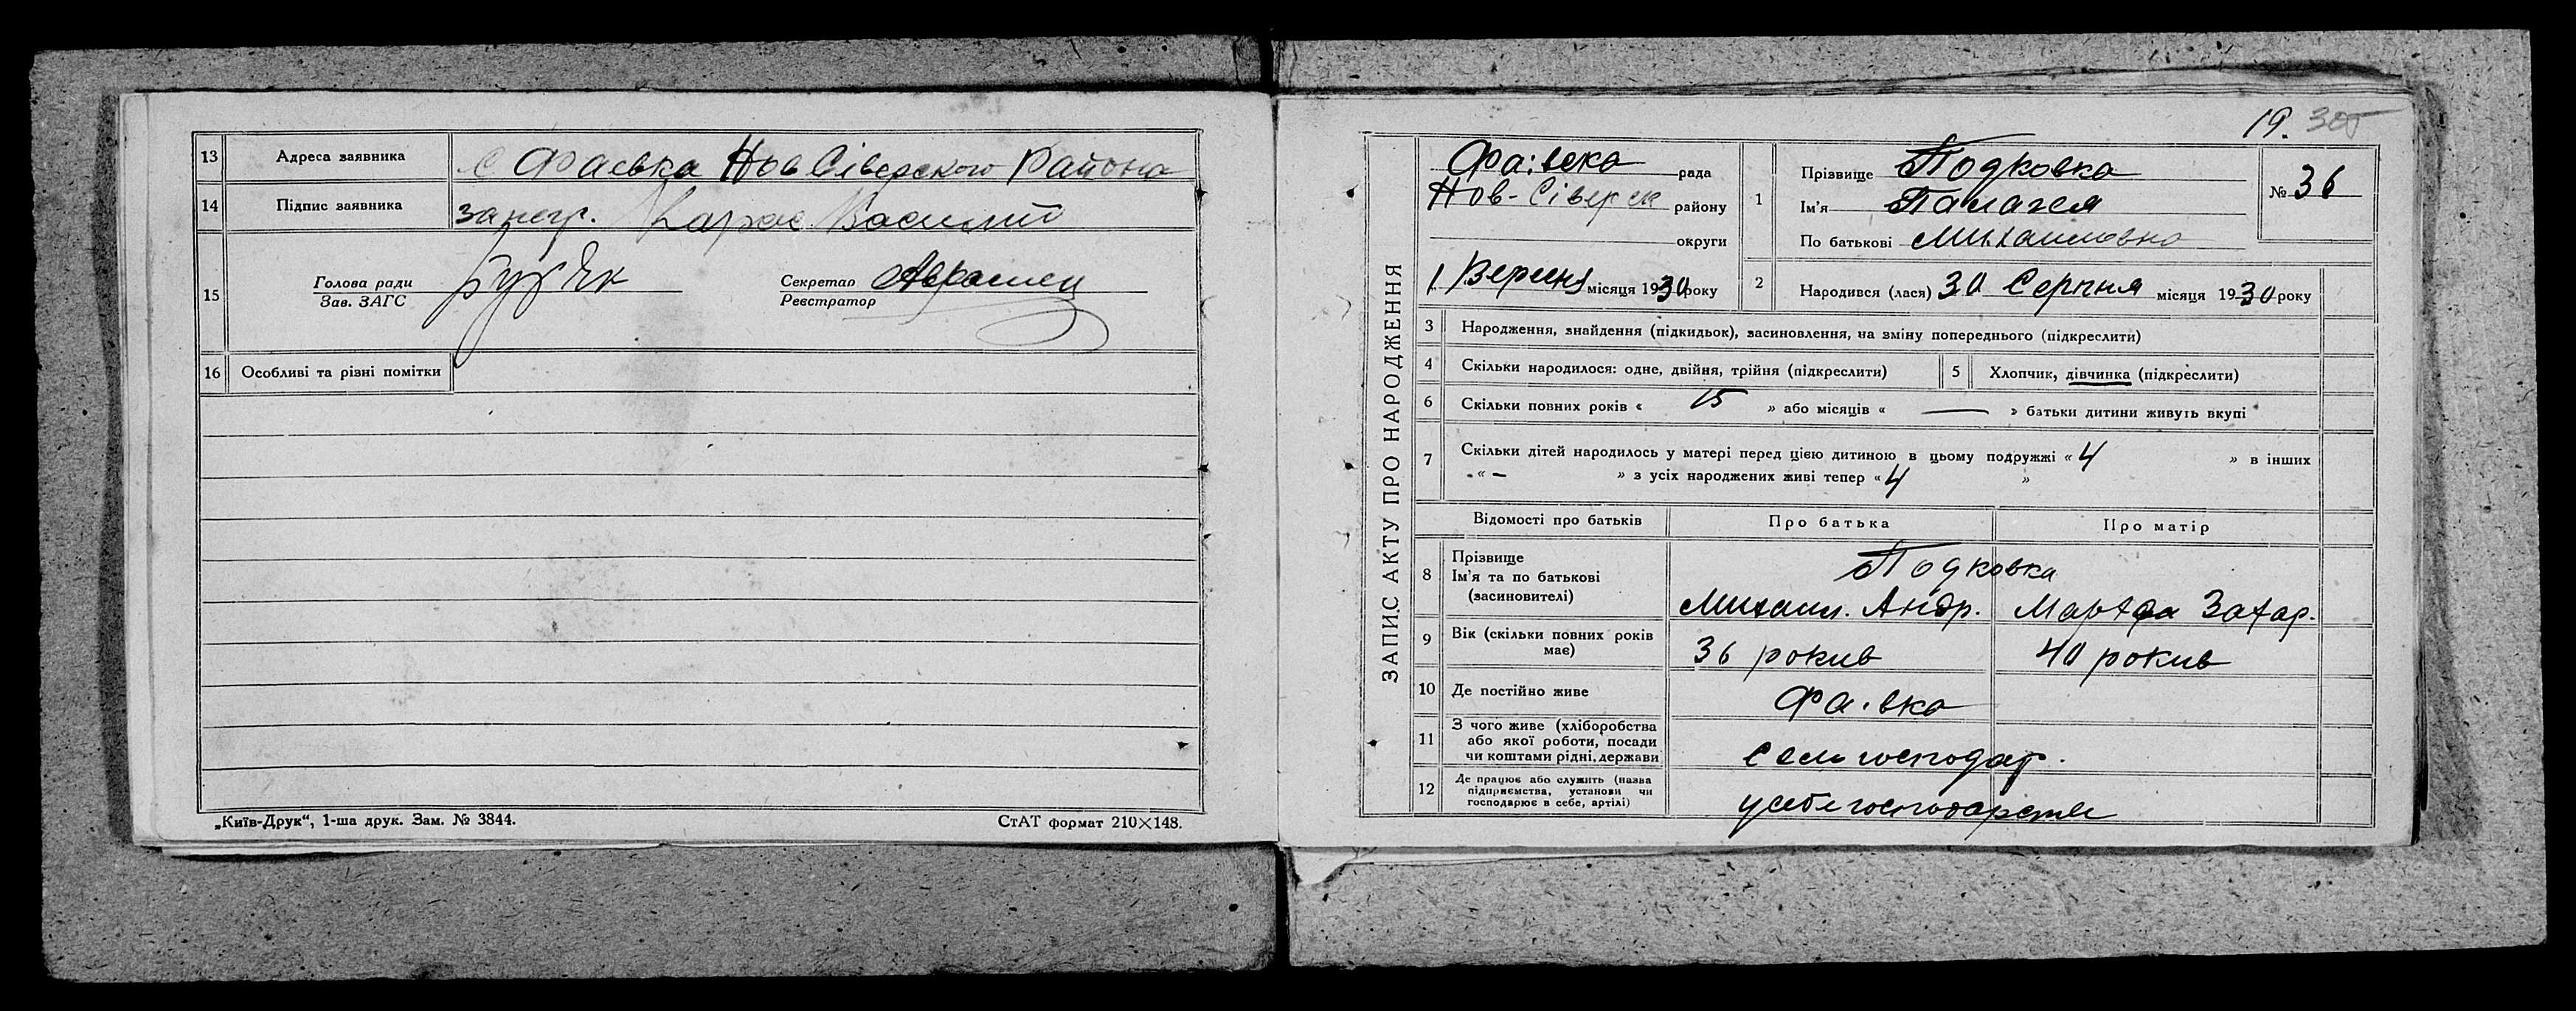 13 Адреса заявника с Фаєвка Нов Сіверского Района
14 Підпис заявника за негр. Карас Василий
15 Голова ради Зав. ЗАГС Буряк Секретар Реєстратор
16 Особливі та різні помітки
„Київ-Друк“, 1-ша друк. Зам. № 3844. СтАТ формат 210×148.
19. 305
ЗАПИС АКТУ ПРО НАРОДЖЕННЯ
Фаівска рада
Нов-Сіверск району
округи
1 Вересня місяця 1930 року
1 Прізвище Подковка
Ім'я Палагея
По батькові Михаиловна
№ 36
2 Народився (лася) 30 Серпня місяця 1930 року
3 Народження, знайдення (підкидьок), засиновлення, на зміну попереднього (підкреслити)
4 Скільки народилося: одне, двійня, трійня (підкреслити) 5 Хлопчик, дівчинка (підкреслити)
6 Скільки повних років « 15 » або місяців « — » батьки дитини живуть вкупі
7 Скільки дітей народилось у матері перед цією дитиною в цьому подружжі « 4 » в інших
« – » з усіх народжених живі тепер « 4 »
Відомості про батьків Про батька Про матір
8 Прізвище Ім'я та по батькові (засновителі) Подковка
Михаил. Андр. Марфа Захар.
9 Вік (скільки повних років має) 36 рокив 40 рокив
10 Де постійно живе Фаівка
11 З чого живе (хліборобства або якої роботи, посади чи коштами рідні, держави сель господар.
12 Де працює або служить (назва підприємства, установи чи господарює в себе, артілі) у себе господарстви